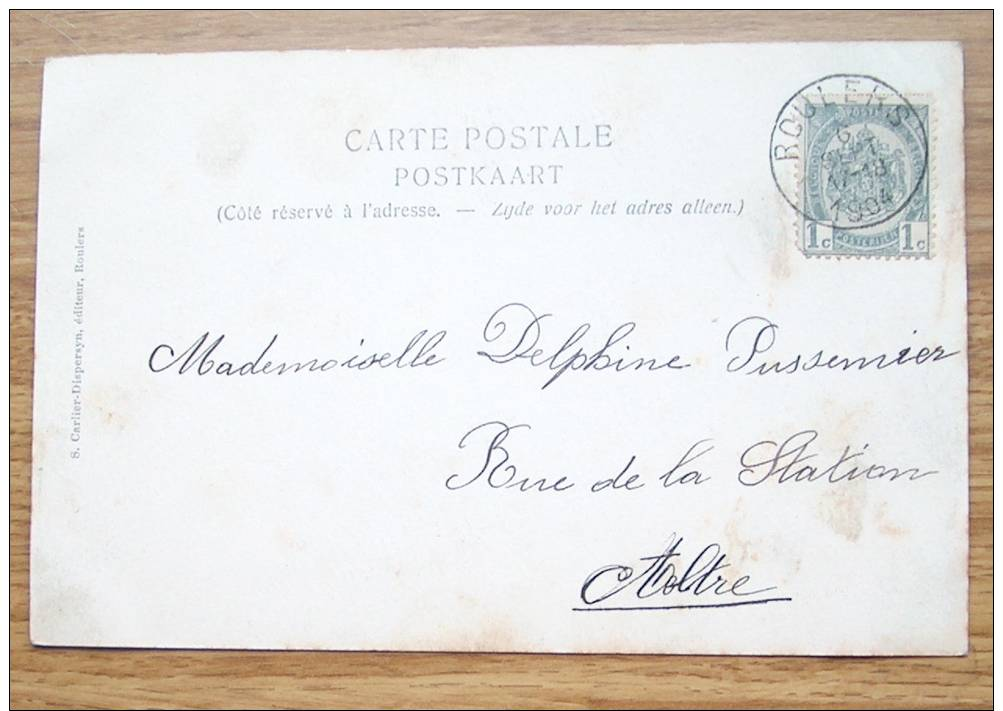 CARTE POSTALE
POSTKAART
(Côté réservé à l'adresse. — Zyde voor het adres alleen.)
ROULERS
6
SEPT
17-18
1904
1c POSTERIJEN 1c
S. Carlier-Dispersyn, éditeur, Roulers
Mademoiselle Delphine Pussemier
Rue de la Station
Aeltre